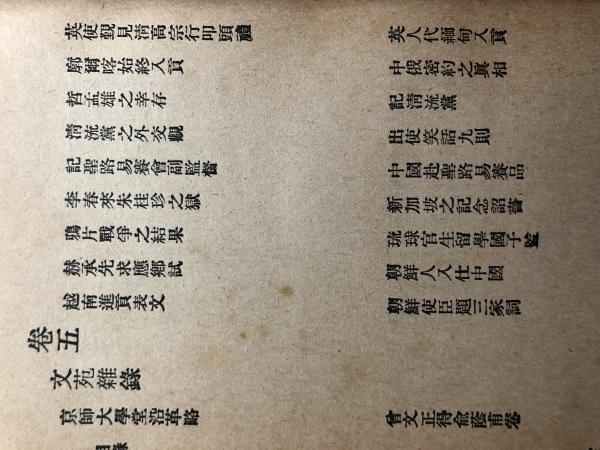 英使覲見清高宗行叩頭禮
英人代緬甸入貢
廓爾喀始終入貢
中俄密約之眞相
哲孟雄之幸存
記淸流黨
淸流黨之外交觀
出使笑話九則
記聖路易賽會副監督
中國赴聖路易賽品
李春來朱桂珍之獄
新加坡之記念詔書
鴉片戰爭之結果
琉球官生留學國子監
赫承先求應鄉試
朝鮮人入仕中國
越南進貢表文
朝鮮使臣題三家詞
卷五
文苑雜錄
京師大學堂沿革略
曾文正得俞蔭甫卷
目錄